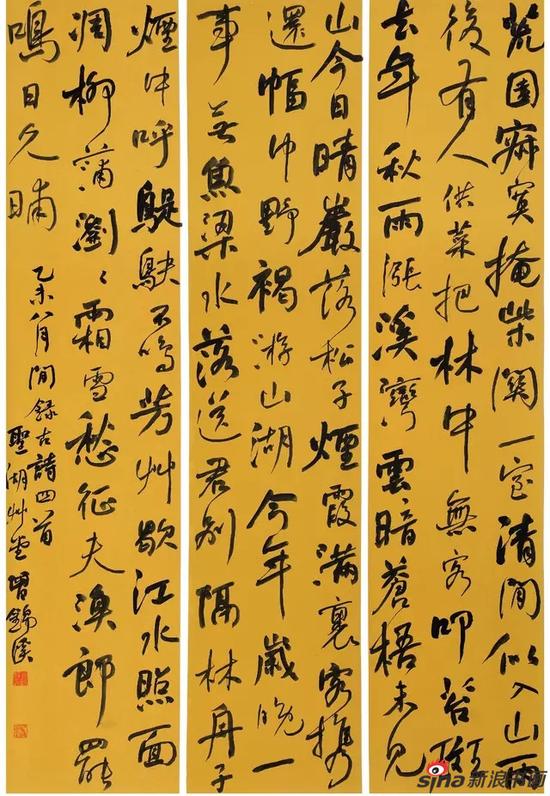 荒園寂寞掩柴關一室清閒似入山雨
後有人供菜把林中無客叩苔斑
去年秋雨漲溪灣雲暗蒼梧未見
山今日晴巖落松子煙霞滿裏客攜
還幅巾野褐游山湖今年歲晚一
事無魚梁水落送君別隔林舟子
煙中呼鶗鴃不鳴芳艸歇江水照面
凋柳蒲瀏々霜雪愁征夫漁郎罷
鳴日久晡
乙未八月間錄古詩四首
聖湖艸堂曾錦溪
sina新浪书画